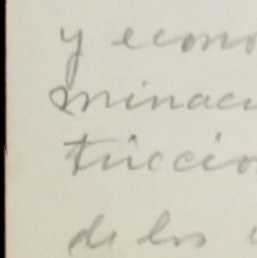 y econo
minaci
triccio
de los